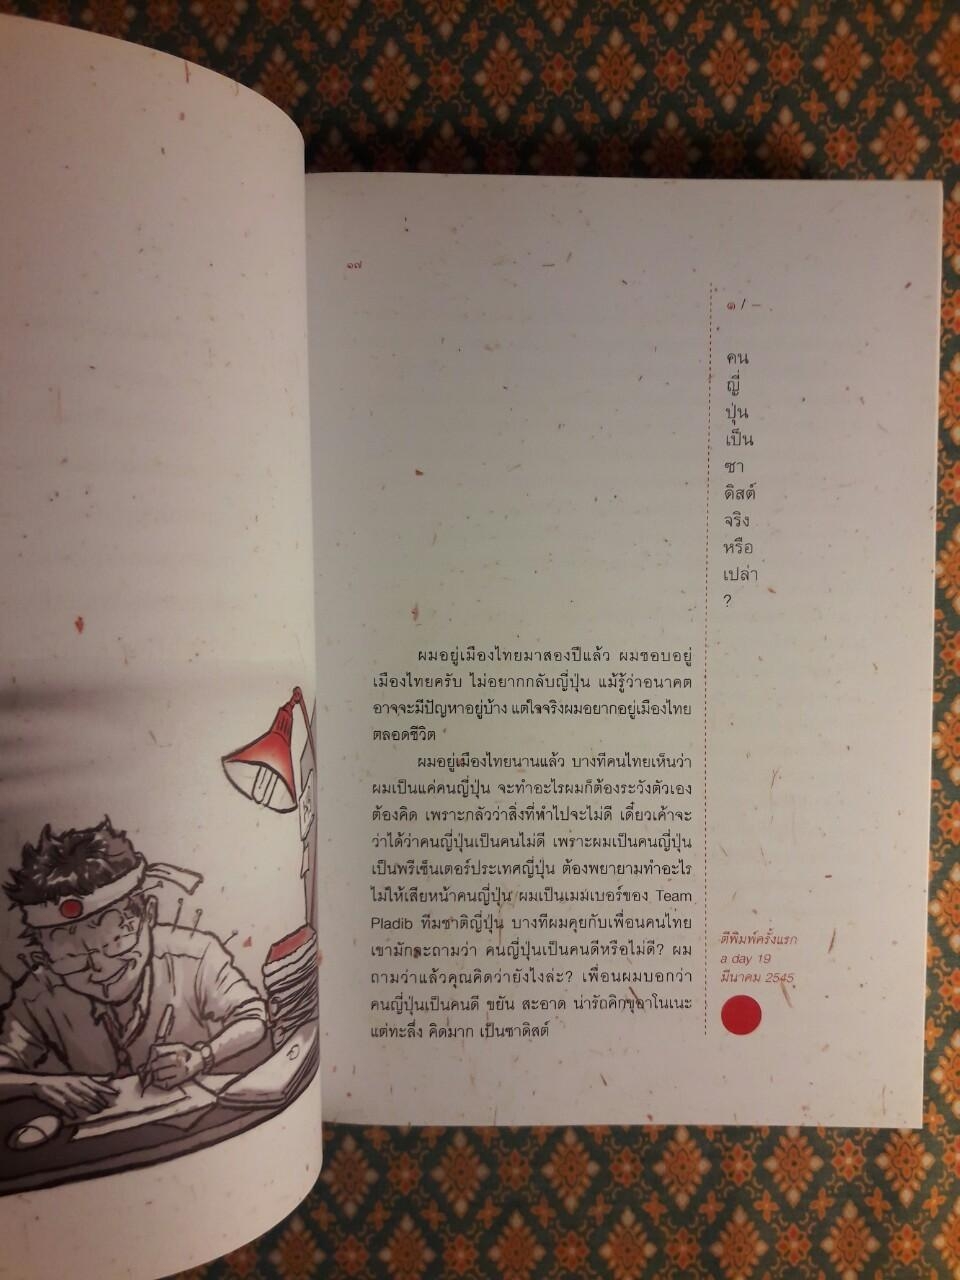 ๑๗
๑ / —
คน
ญี่
ปุ่น
เป็น
ซา
ดิสต์
จริง
หรือ
เปล่า
?
ผมอยู่เมืองไทยมาสองปีแล้ว ผมชอบอยู่
เมืองไทยครับ ไม่อยากกลับญี่ปุ่น แม้รู้ว่าอนาคต
อาจจะมีปัญหาอยู่บ้าง แต่ใจจริงผมอยากอยู่เมืองไทย
ตลอดชีวิต
ผมอยู่เมืองไทยนานแล้ว บางทีคนไทยเห็นว่า
ผมเป็นแค่คนญี่ปุ่น จะทำอะไรผมก็ต้องระวังตัวเอง
ต้องคิด เพราะกลัวว่าสิ่งที่ทำไปจะไม่ดี เดี๋ยวเค้าจะ
ว่าได้ว่าคนญี่ปุ่นเป็นคนไม่ดี เพราะผมเป็นคนญี่ปุ่น
เป็นพรีเซ็นเตอร์ประเทศญี่ปุ่น ต้องพยายามทำอะไร
ไม่ให้เสียหน้าคนญี่ปุ่น ผมเป็นเมมเบอร์ของ Team
Pladib ทีมชาติญี่ปุ่น บางทีผมคุยกับเพื่อนคนไทย
เขามักจะถามว่า คนญี่ปุ่นเป็นคนดีหรือไม่ดี? ผม
ถามว่าแล้วคุณคิดว่ายังไงล่ะ? เพื่อนผมบอกว่า
คนญี่ปุ่นเป็นคนดี ขยัน สะอาด น่ารักคิกขุอาโนเนะ
แต่ทะลึ่ง คิดมาก เป็นซาดิสต์
ตีพิมพ์ครั้งแรก
a day 19
มีนาคม 2545